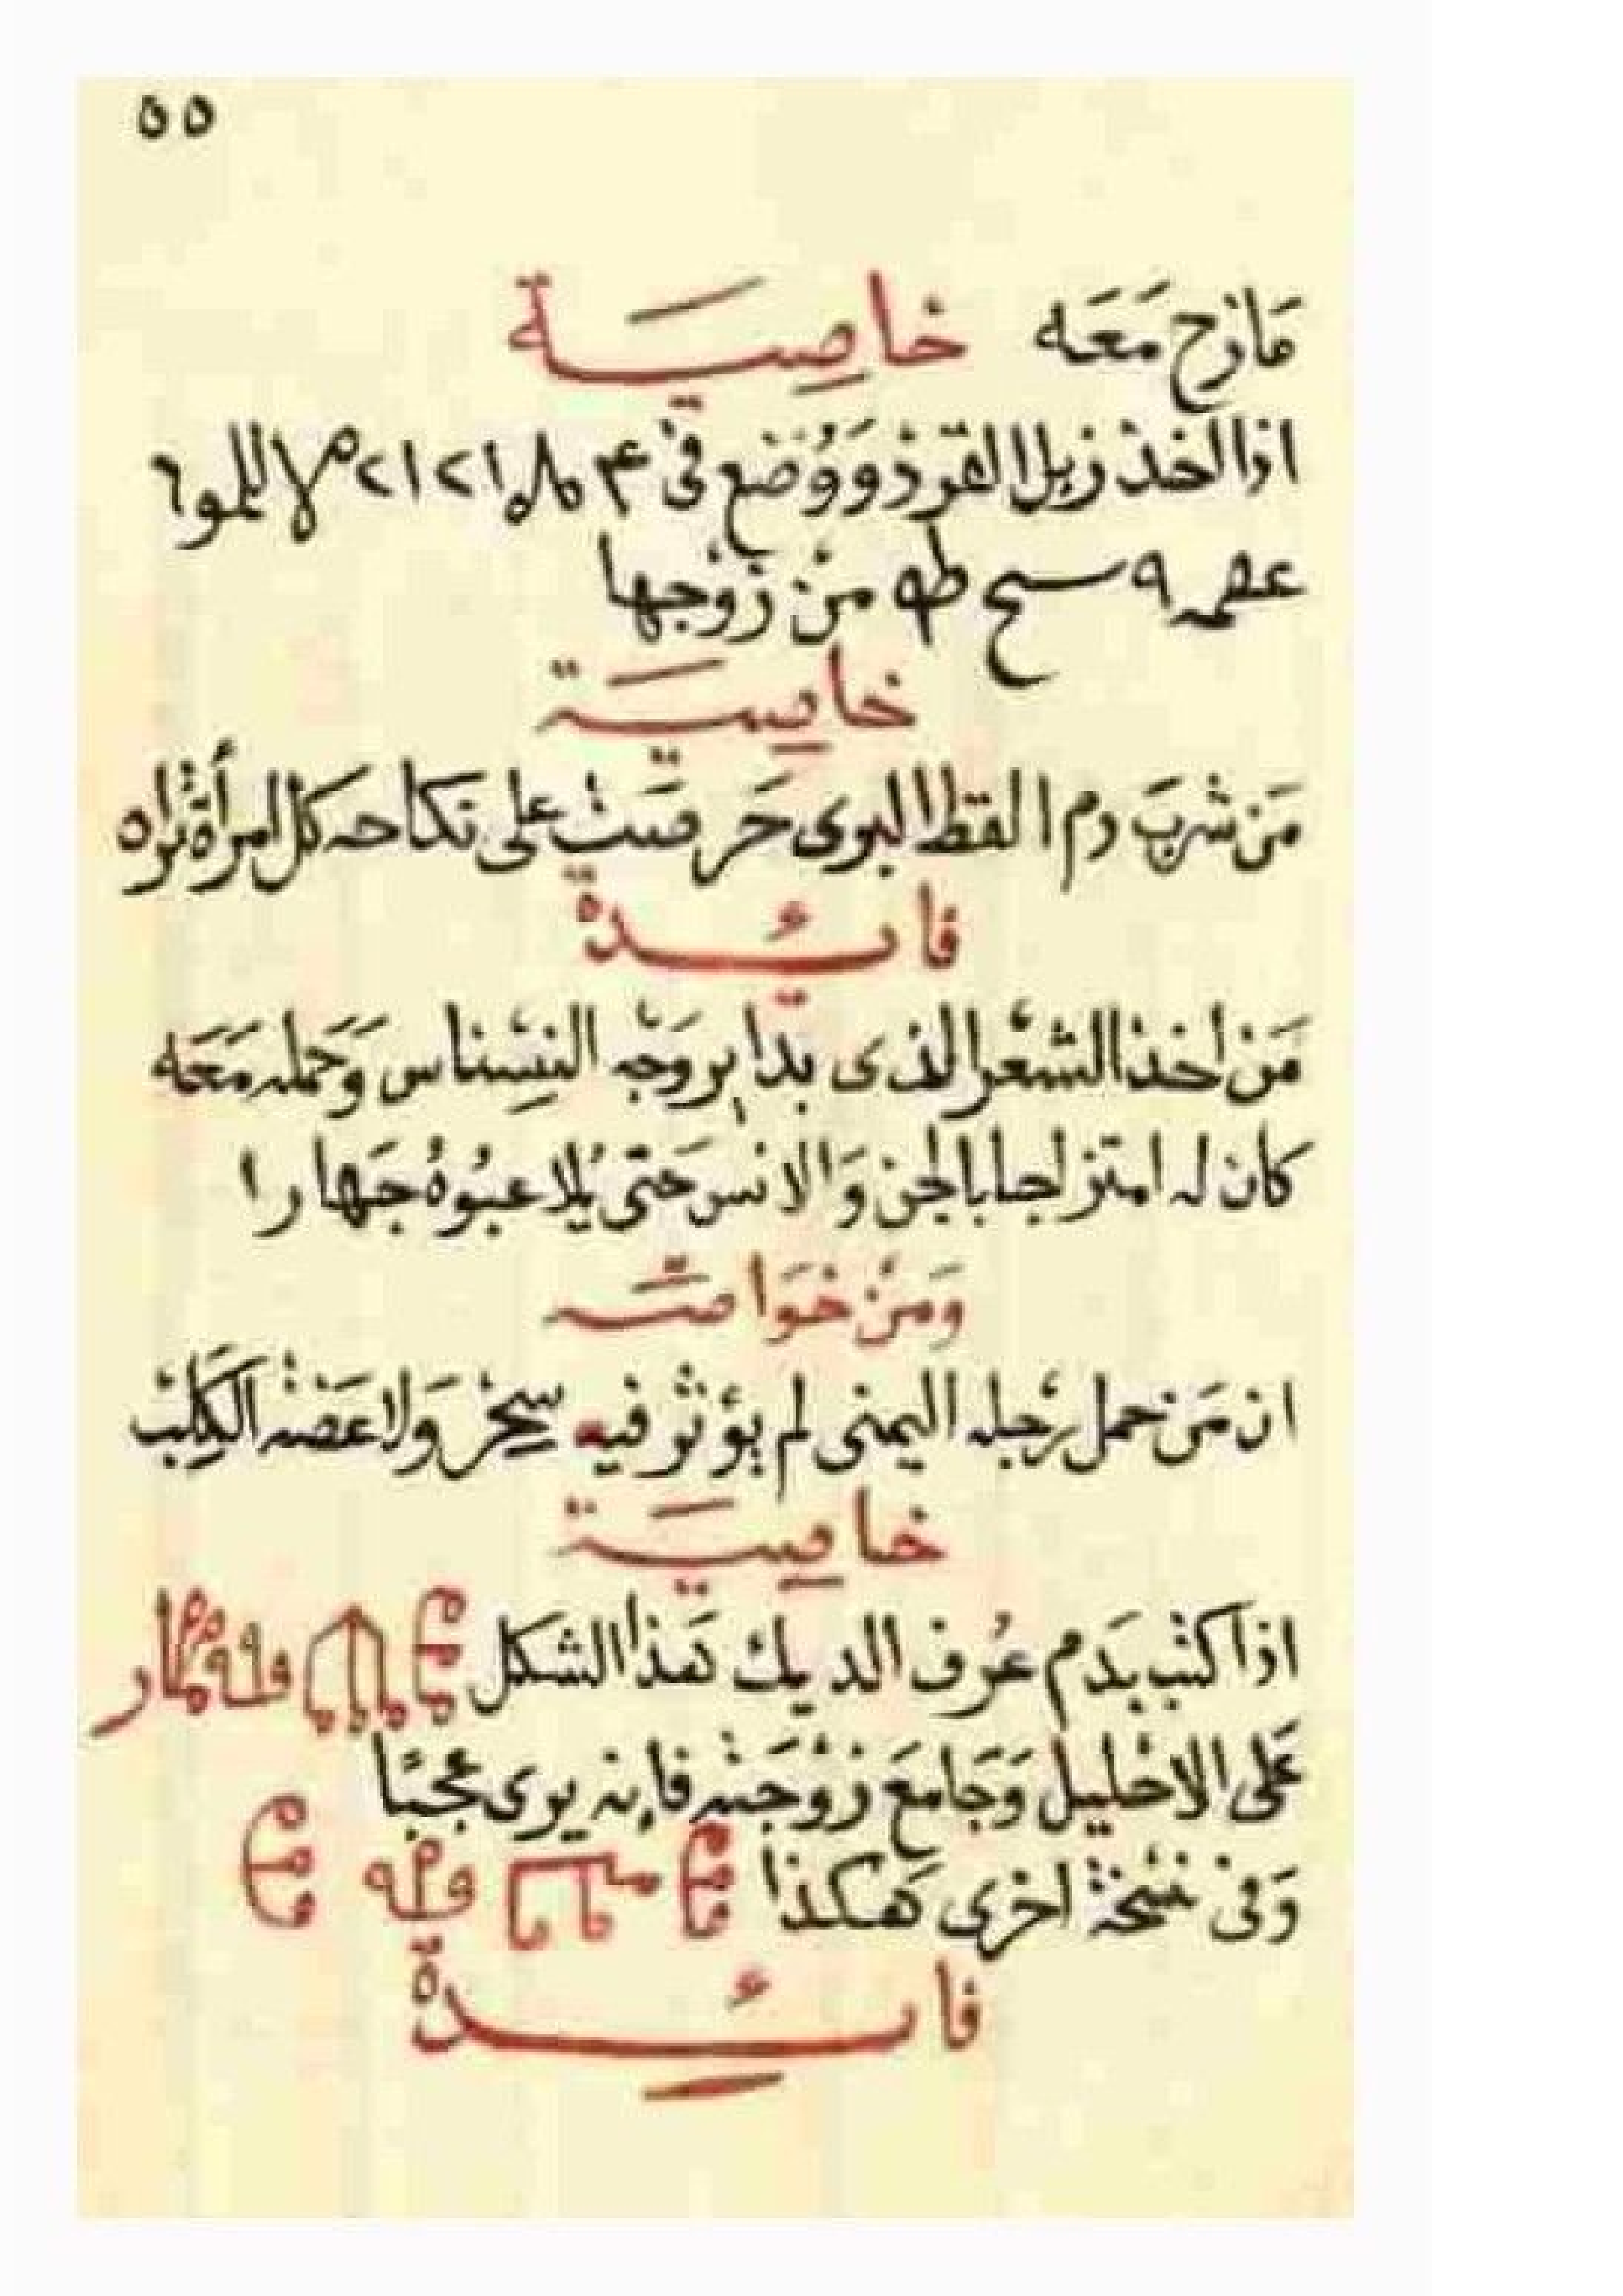 ٥٥
مازح معه خاصية
اذا اخذ زبل القرد ووضع في
من زوجها
خاصية
من شرب دم القط البرى حرصت على نكاحه كل امرأة تراه
فائدة
من اخذ الشعر الذى بدابر وجه النسناس وحمله معه
كان له امتزاجا بالجن والانس حتى يلاعبوه جهارا
ومن خواصه
ان من حمل رجله اليمنى لم يؤثر فيه سحر ولا عضه الكلب
خاصية
اذا كتب بدم عرف الديك هذا الشكل
على الاحليل وجامع زوجته فإنه يرى عجبًا
وفى نسخة اخرى هكذا
فائدة